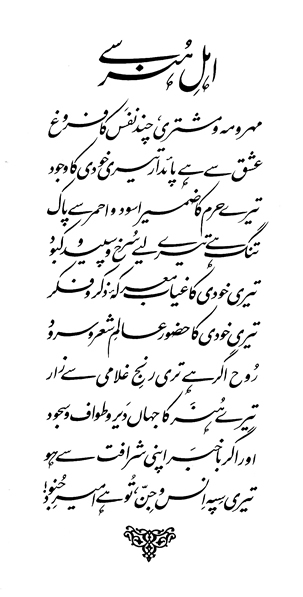 اہلِ ہنر سے
مہر و مہ و مشتری، چند نفس کا فروغ
عشق سے ہے پائدار تیری خودی کا وجود
تیرے حرم کا ضمیر اسود و احمر سے پاک
ننگ ہے تیرے لیے سُرخ و سپید و کبود
تیری خودی کا غیاب معرکۂ ذکر و فکر
تیری خودی کا حضور عالمِ شعر و سرود
رُوح اگر ہے تری رنجِ غلامی سے زار
تیرے ہُنر کا جہاں دَیر و طواف و سجود
اور اگر باخبر اپنی شرافت سے ہو
تیری سپہ اِنس و جِن، تُو ہے امیرِ جُنود!